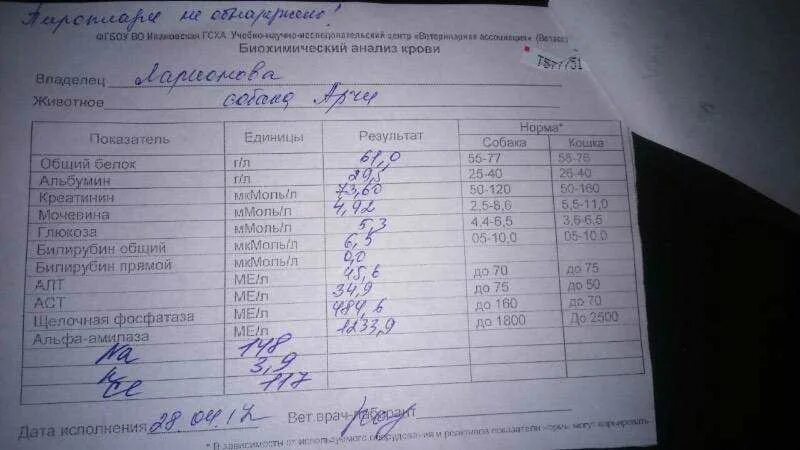 Пироплазм не обнаружено!
ФГБОУ ВО Ивановская ГСХА. Учебно-научно-исследовательский центр «Ветеринарная ассоциация» (Ветасс)
Биохимический анализ крови
Владелец Ларионова
Животное собака Арчи
Показатель Единицы Результат Норма*
Собака Кошка
Общий белок г/л 61,0 55-77 56-76
Альбумин г/л 29,5 25-40 26-40
Креатинин мкМоль/л 73,60 50-120 50-160
Мочевина мМоль/л 4,92 2,5-8,6 5,5-11,0
Глюкоза мМоль/л 5,3 4.4-6,5 3,6-6.5
Билирубин общий мкМоль/л 6,5 05-10,0 05-10.0
Билирубин прямой мкМоль/л 0,0
АЛТ МЕ/л 45,6 до 70 до 75
АСТ МЕ/л 34,9 до 75 до 50
Щелочная фосфатаза МЕ/л 484,6 до 160 до 70
Альфа-амилаза МЕ/л 1233,9 до 1800 До 2500
Na 148
K 3,9
Cl 117
Дата исполнения 28.04.17 Вет.врач-лаборант
* В зависимости от используемого оборудования и реактивов показатели нормы могут варьировать